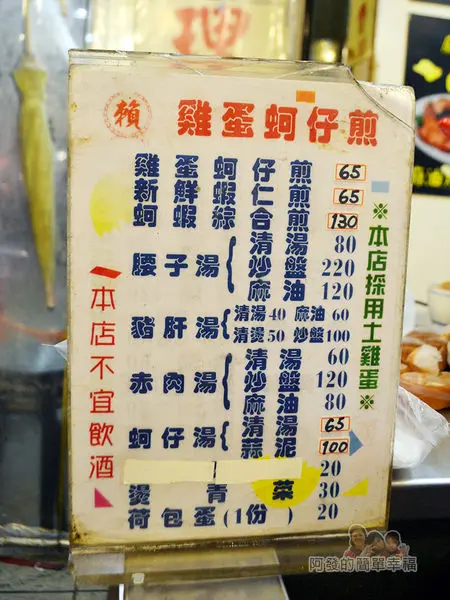 賴 雞蛋蚵仔煎
雞蛋蚵仔煎 65
新鮮蝦仁煎 65
蚵蝦綜合煎 130
腰子湯 清湯 80
炒盤 220
麻油 120
豬肝湯 清湯40 麻油 60
清燙50 炒盤100
赤肉湯 清湯 60
炒盤 120
麻油 80
蚵仔湯 清湯 65
蒜泥 100
20
燙青菜 30
荷包蛋(1份) 20
※本店採用土雞蛋※
本店不宜飲酒
阿發的簡單幸福